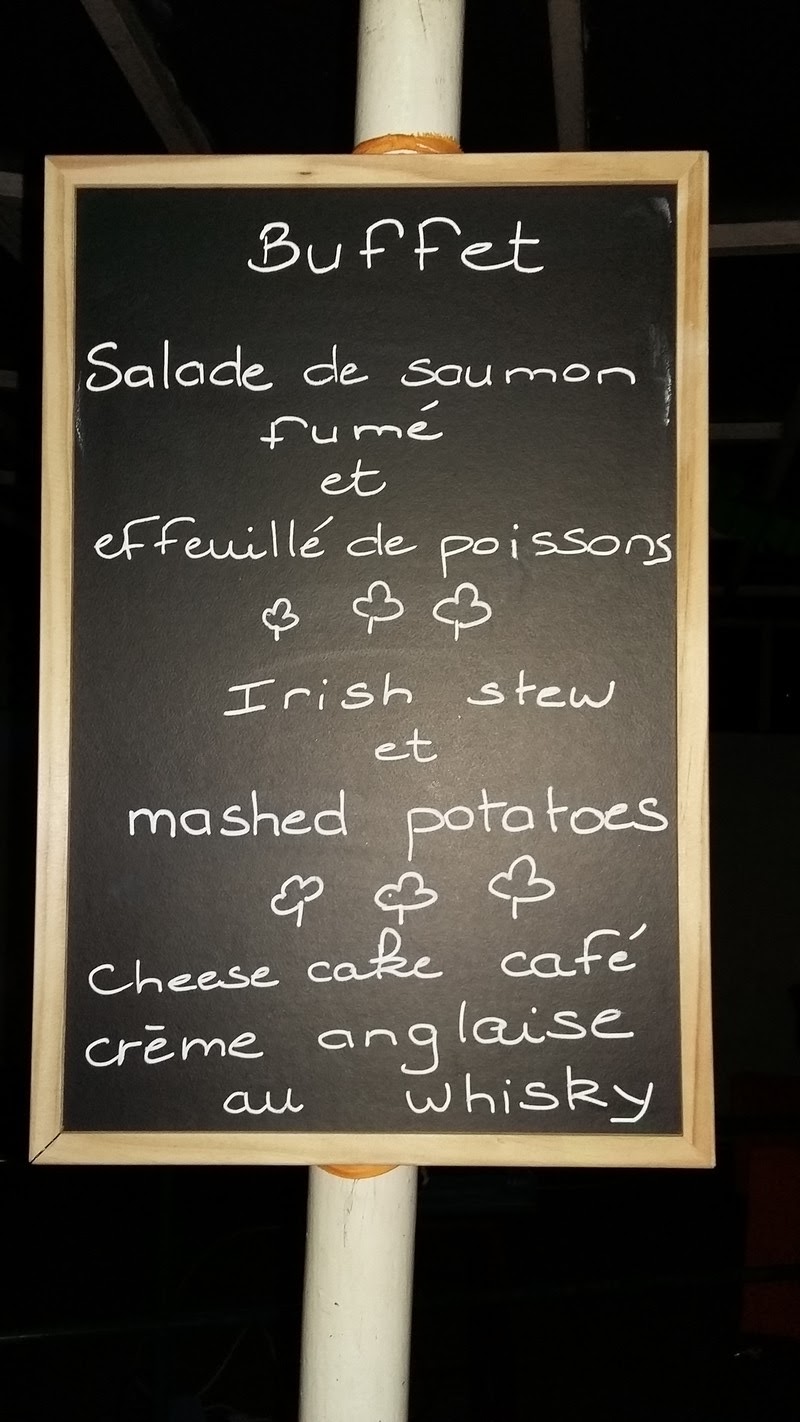 Buffet
Salade de saumon
fumé
et
effeuillé de poissons
Irish stew
et
mashed potatoes
Cheese cake café
crēme anglaise
au whisky